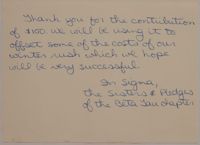 Thank you for the contribution
of $100. We will be using it to
offset some of the costs of our
winter rush which we hope
will be very successful.
In Sigma,
the Sisters & Pledges
of the Beta Tau chapter